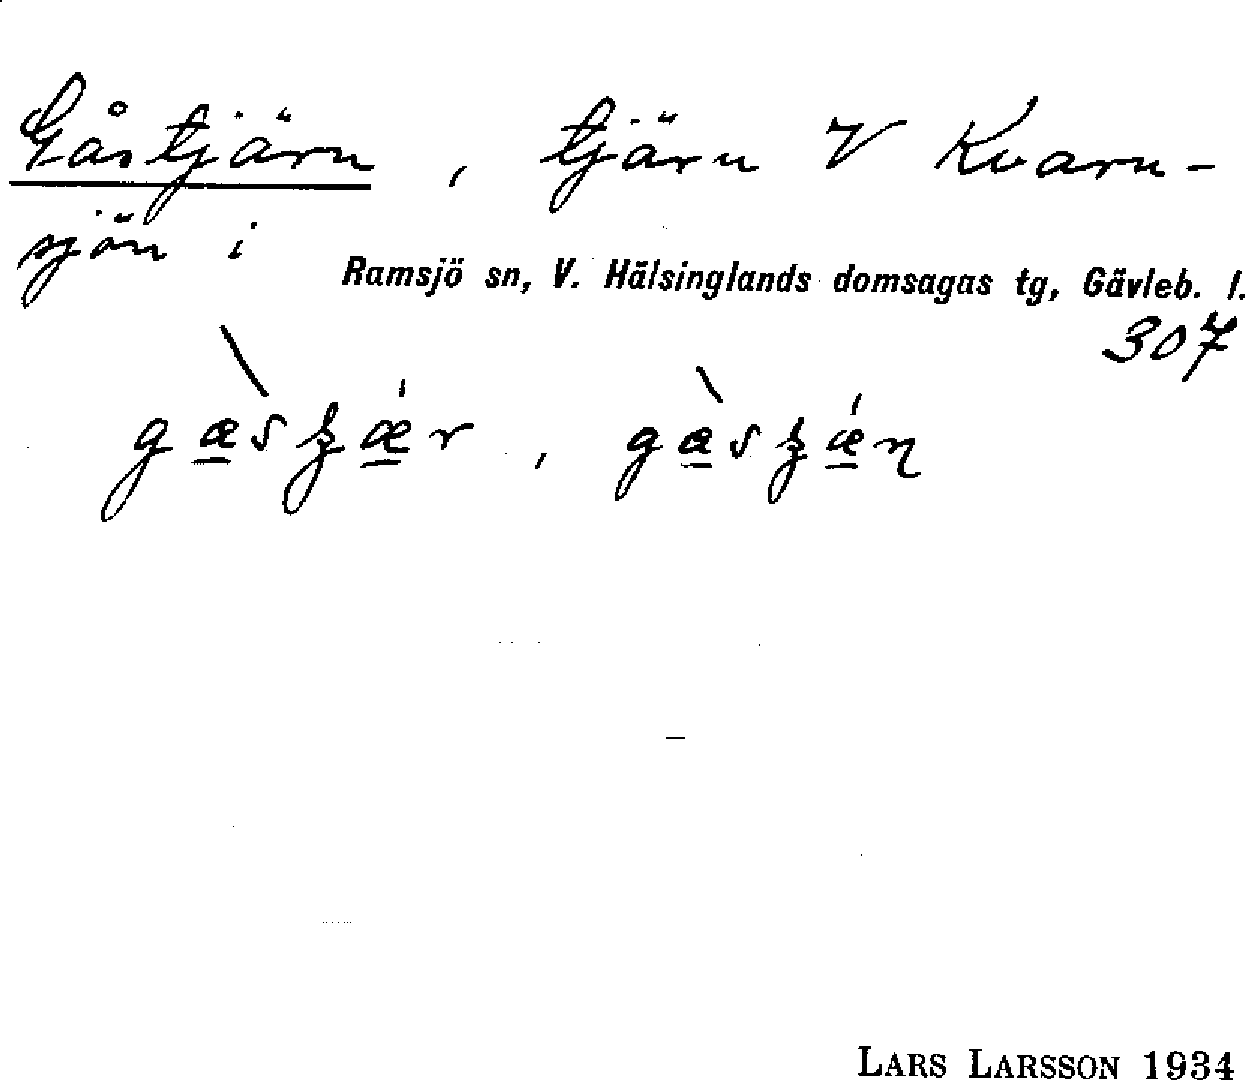 Gåstjärn, tjärn V Kvarn-
sjön i
Ramsjö sn, V. Hälsinglands domsagas tg, Gävleb. l.
307
LARS LARSSON 1934